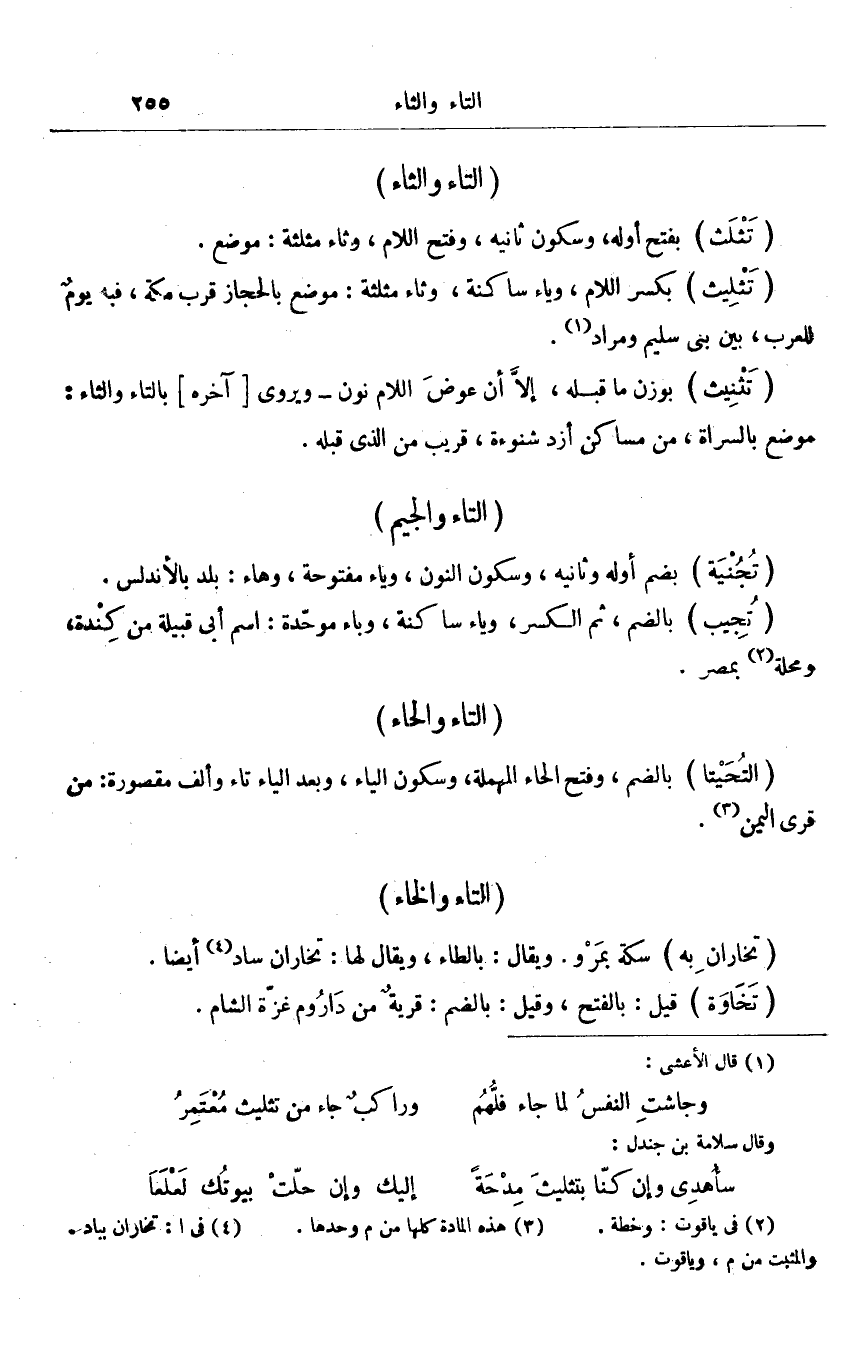 التاء والثاء ٢٥٥
( التاء والثاء )
( تَثْلَث ) بفتح أوله، وسكون ثانيه ، وفتح اللام ، وثاء مثلثة : موضع .
( تَثْلِيث ) بكسر اللام ، وياء ساكنة ، وثاء مثلثة : موضع بالحجاز قرب مكة ، فيه يومٌ
للعرب ، بين بنى سليم ومراد(١) .
( تَثْنِيث ) بوزن ما قبـله ، إلاَّ أن عوضَ اللام نون ــ ويروى [ آخره ] بالتاء والثاء :
موضع بالسراة ، من مساكن أزد شنوءة ، قريب من الذى قبله .
( التاء والجيم )
( تُجُنْيَة ) بضم أوله وثانيه ، وسكون النون ، وياء مفتوحة ، وهاء : بلد بالأندلس .
( تُجِيب ) بالضم ، ثم الكسر، وياء ساكنة ، وباء موحّدة : اسم أبى قبيلة من كِنْدة،
ومحلة(٢) بمصر .
( التاء والحاء )
( التُحَيْتا ) بالضم ، وفتح الحاء المهملة، وسكون الياء ، وبعد الياء تاء وألف مقصورة: من
قرى اليمن(٣) .
( التاء والخاء )
( تخاران ِبه ) سكة بمَرْو . ويقال : بالطاء ، ويقال لها : تخاران ساد(٤) أيضا .
( تَخَاوَة ) قيل : بالفتح ، وقيل : بالضم : قريةٌ من دَارُوم غزّة الشام .
(١) قال الأعشى :
وجاشتِ النفسُ لما جاء فلُّهُم وراكبٌ جاء من تثليث مُعْتَمِرُ
وقال سلامة بن جندل :
سأهدِى وإن كنّا بتثليثَ مِدْحَةً إليك وإن حلّتْ بيوتُك لَعْلَعَا
(٢) فى ياقوت : وخطة . (٣) هذه المادة كلها من م وحدها . (٤) فى ا : تخاران بياد.
والمثبت من م ، وياقوت .